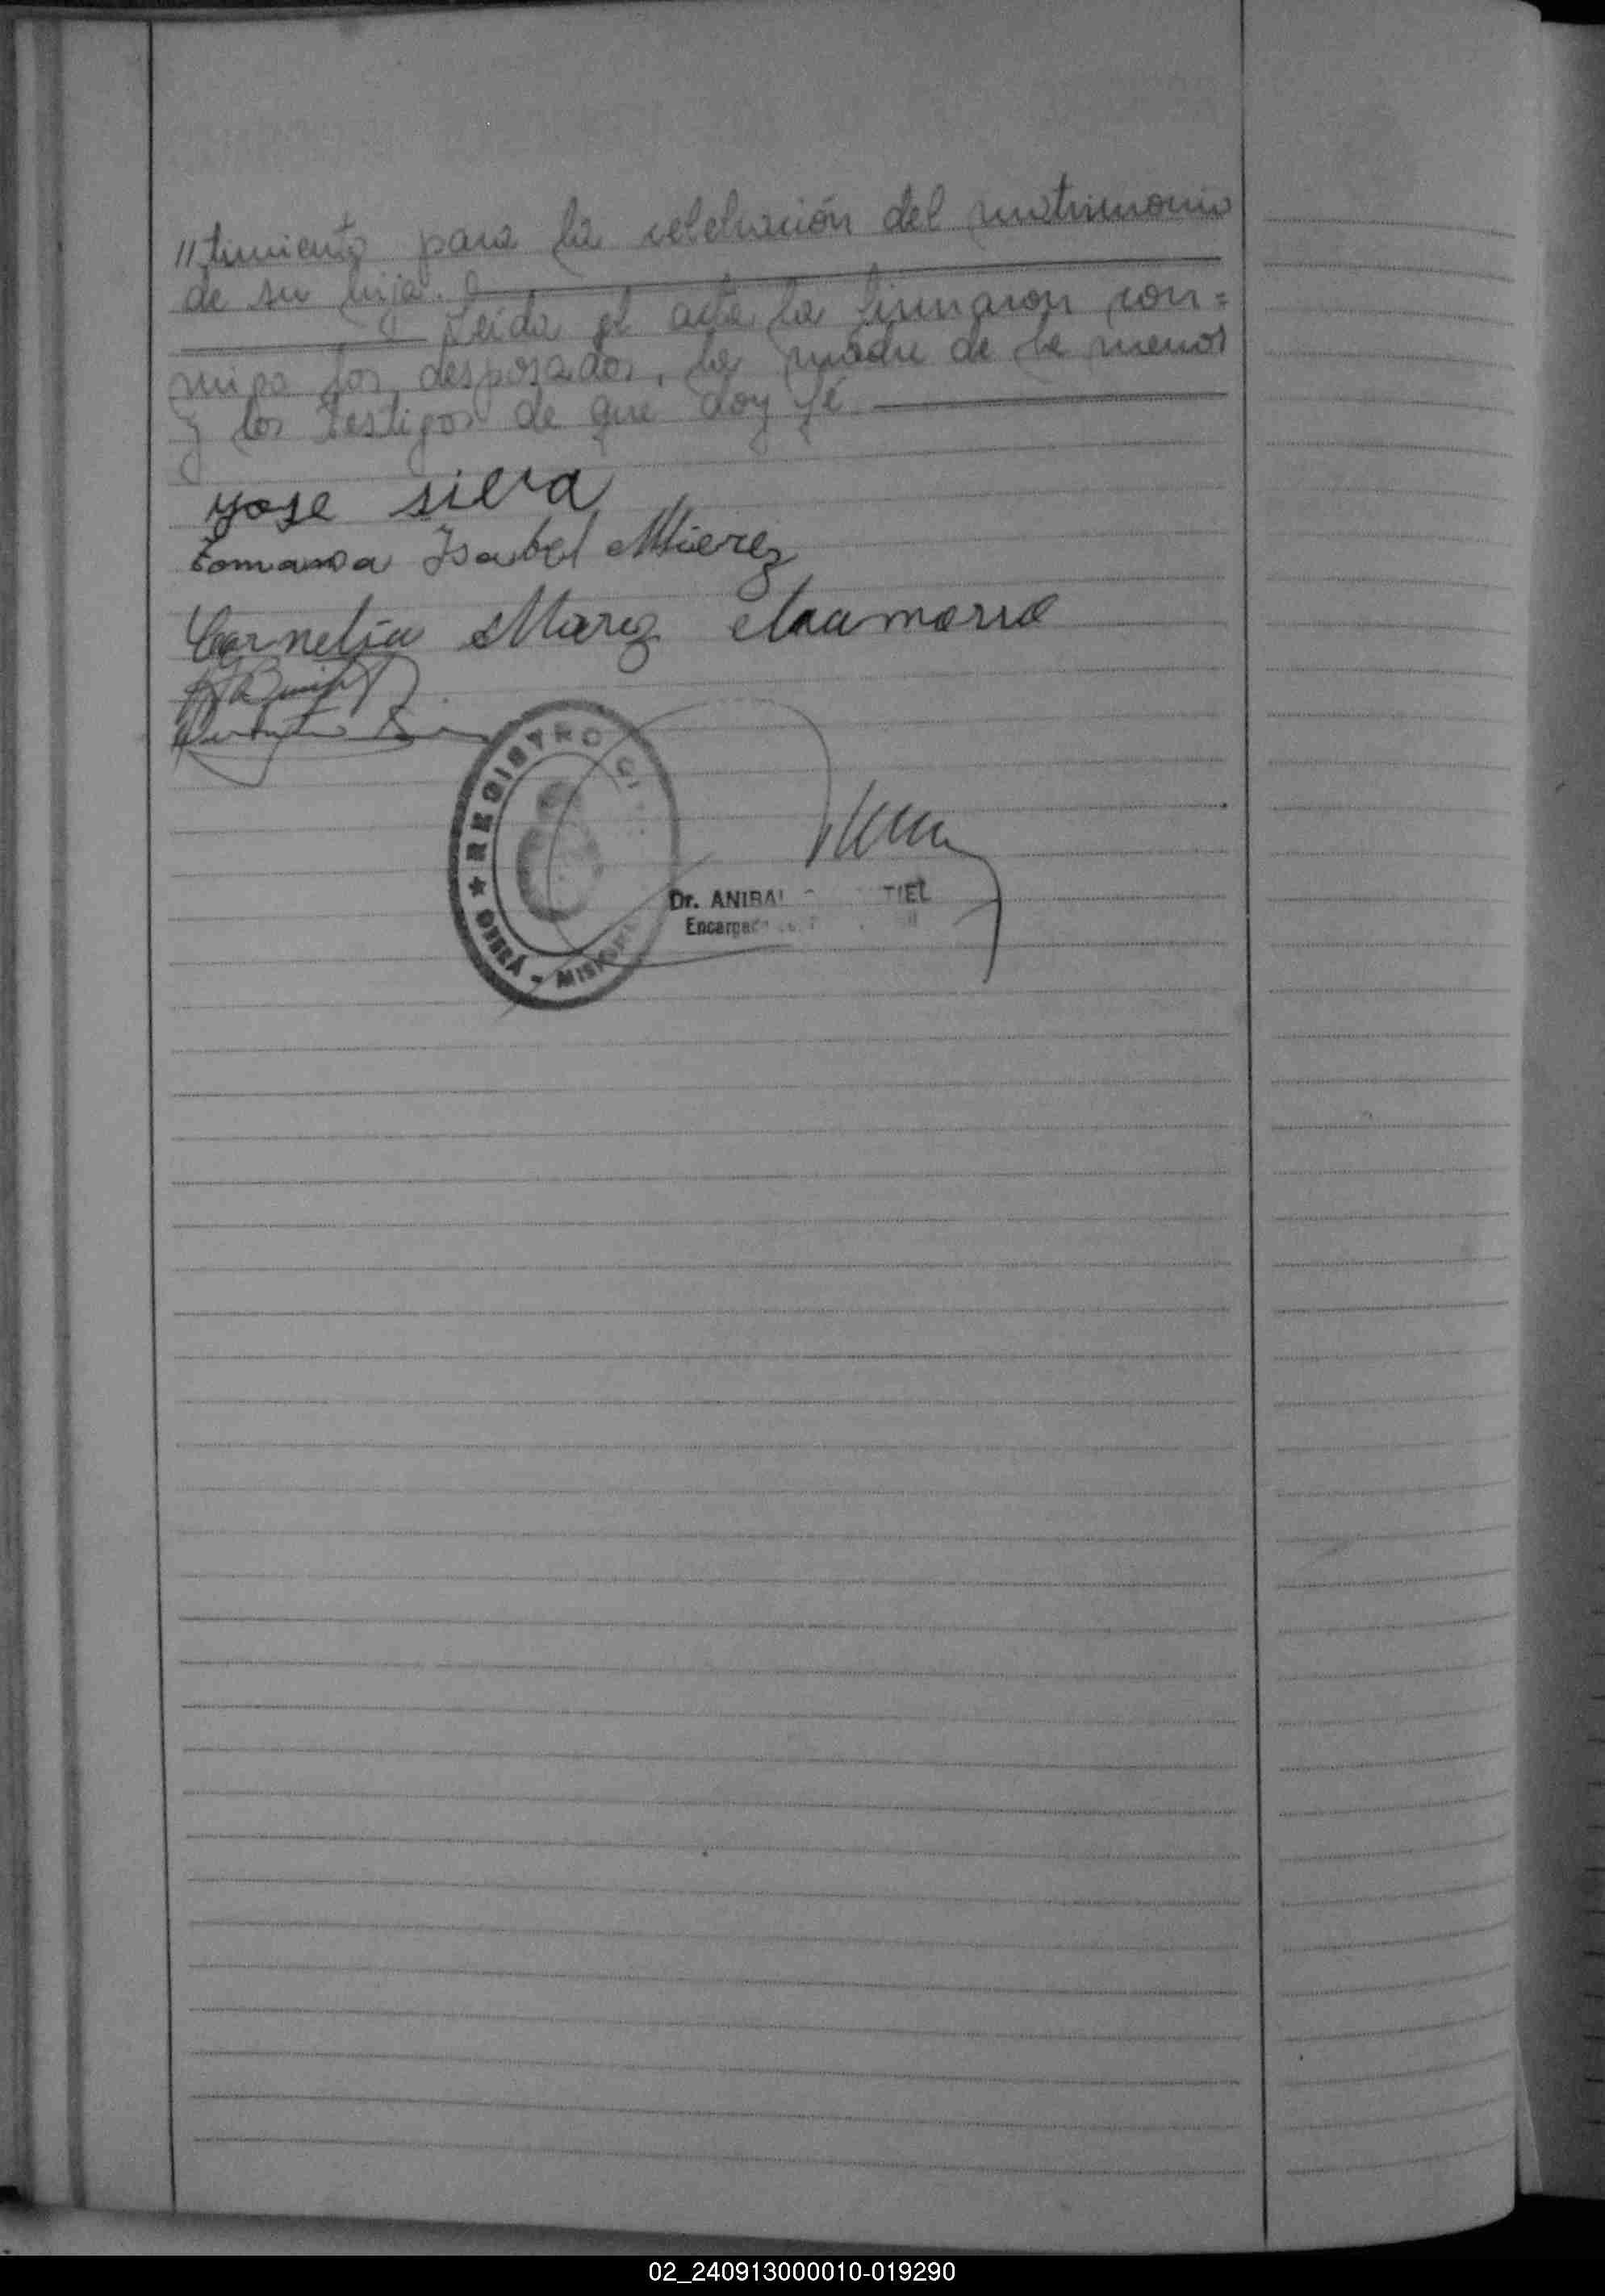 "timiento para la celebración del matrimonio
de su hija.
Leida el acta la firmaron con=
migo los desposados, la madre de la menor
y los testigos de que doy fé
yose silva
Tomasa Isabel Mierez
Cornelia Marez
REGISTRO CI
★ OBERÁ - MISIONE
Dr. ANIBAL TIEL
Encargado
02_240913000010-019290